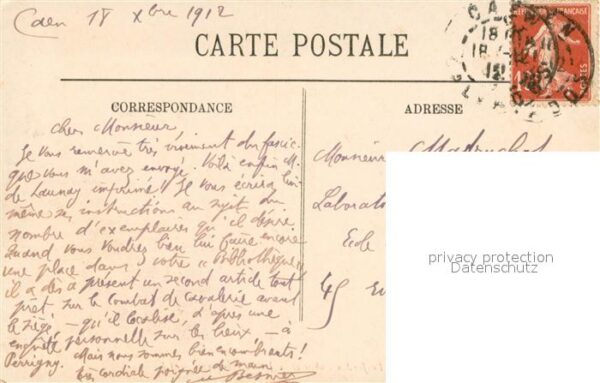 Caen 18 Xbre 1912
CARTE POSTALE
CORRESPONDANCE
ADRESSE
Cher Monsieur
Je vous remercie très vivement du fascic.
que vous m'avez envoyé. Voilà enfin M.
de Launay imprimé! Je vous écrirai lui
même ses instructions au sujet du
nombre d'exemplaires qu'il désire.
Quand vous voudrez bien lui faire encore
une place dans votre "Bibliothèque"
il a dès à présent un second article tout
prêt, sur le combat de cavalerie avant
le siège — qu'il localise, d'après une
enquête personnelle sur les lieux — à
Perrigny. Mais nous sommes bien encombrants!
très cordiale poignée de main.
Besnier
Monsieur
Laborat
Ecole
45
privacy protection
Datenschutz
CAEN
18
12
POSTES